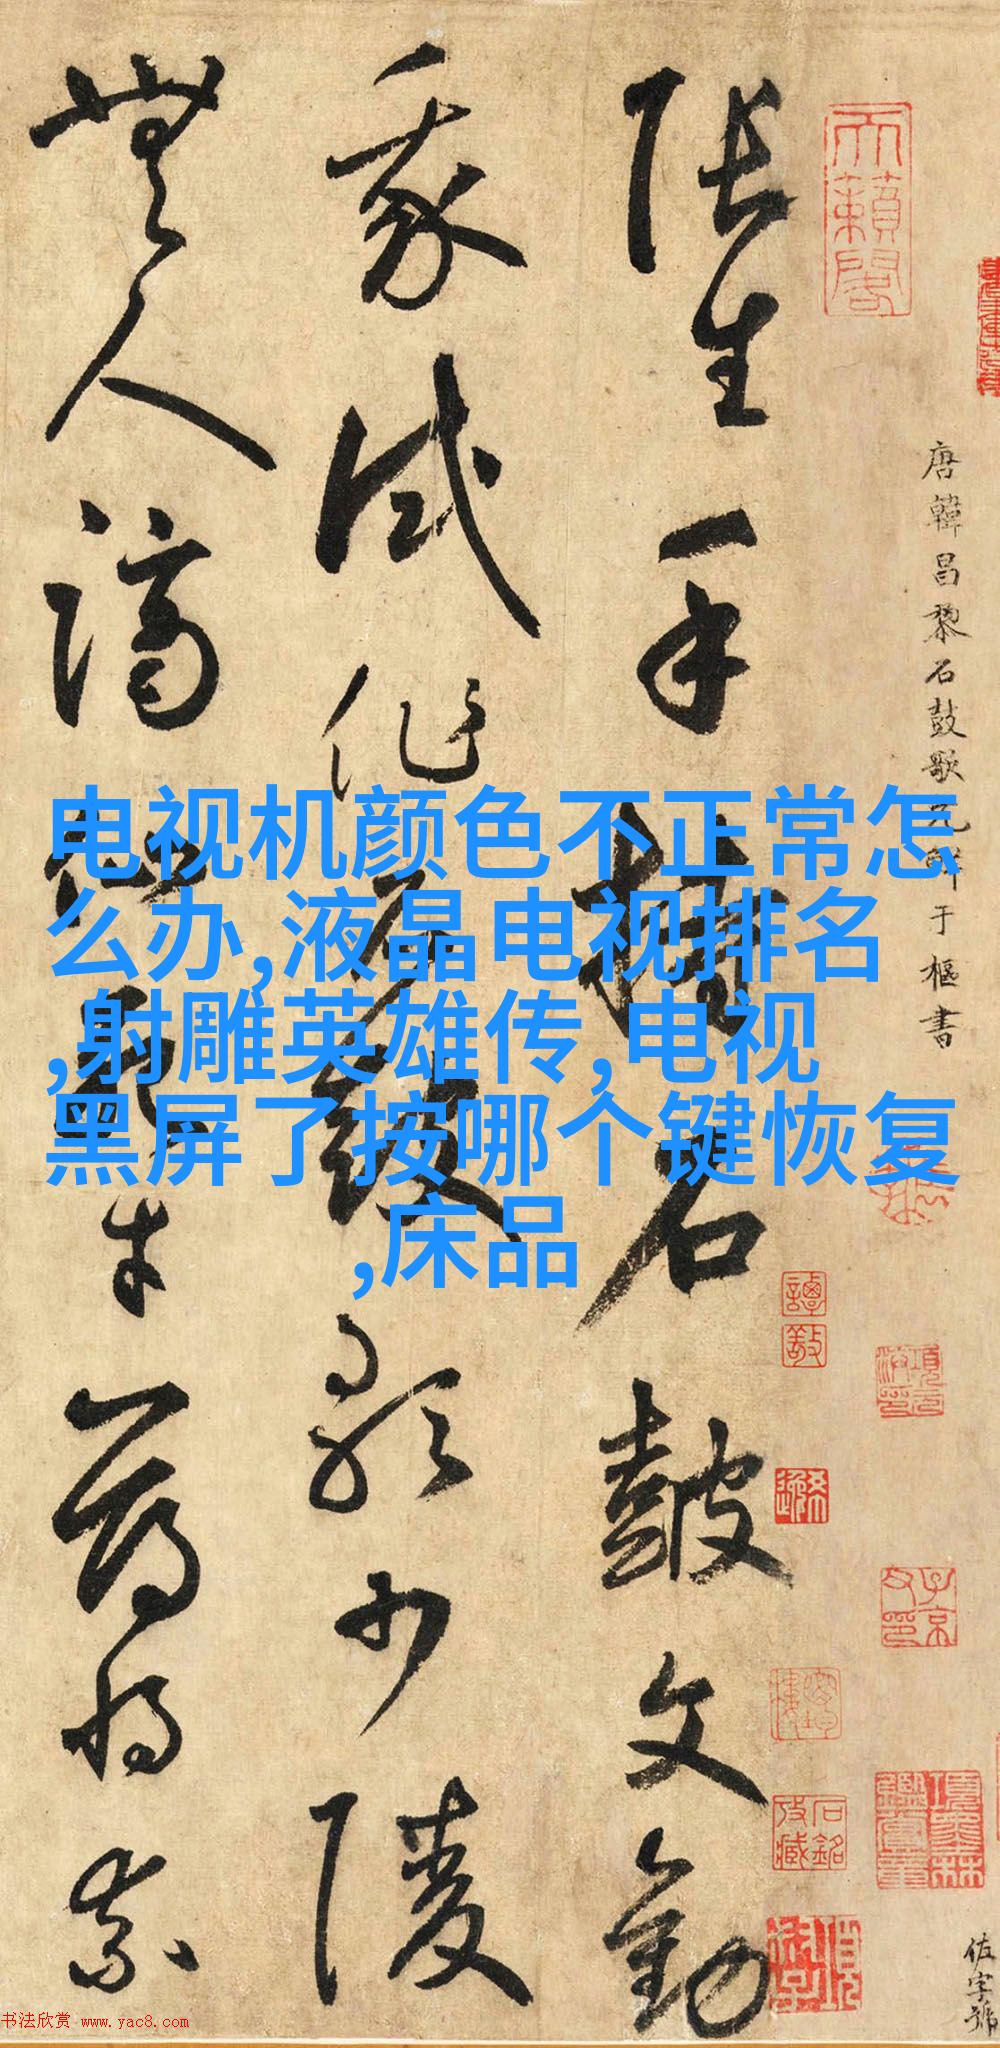 張生手持石鼓文勸
我試作石鼓歌少陵
無人謫仙死才薄將奈
唐韓昌黎石鼓歌元鮮于樞書
天籟閣
佐字號
电视机颜色不正常怎
么办,液晶电视排名
,射雕英雄传,电视
黑屏了按哪个键恢复
,床品
书法欣赏 www.yac8.com